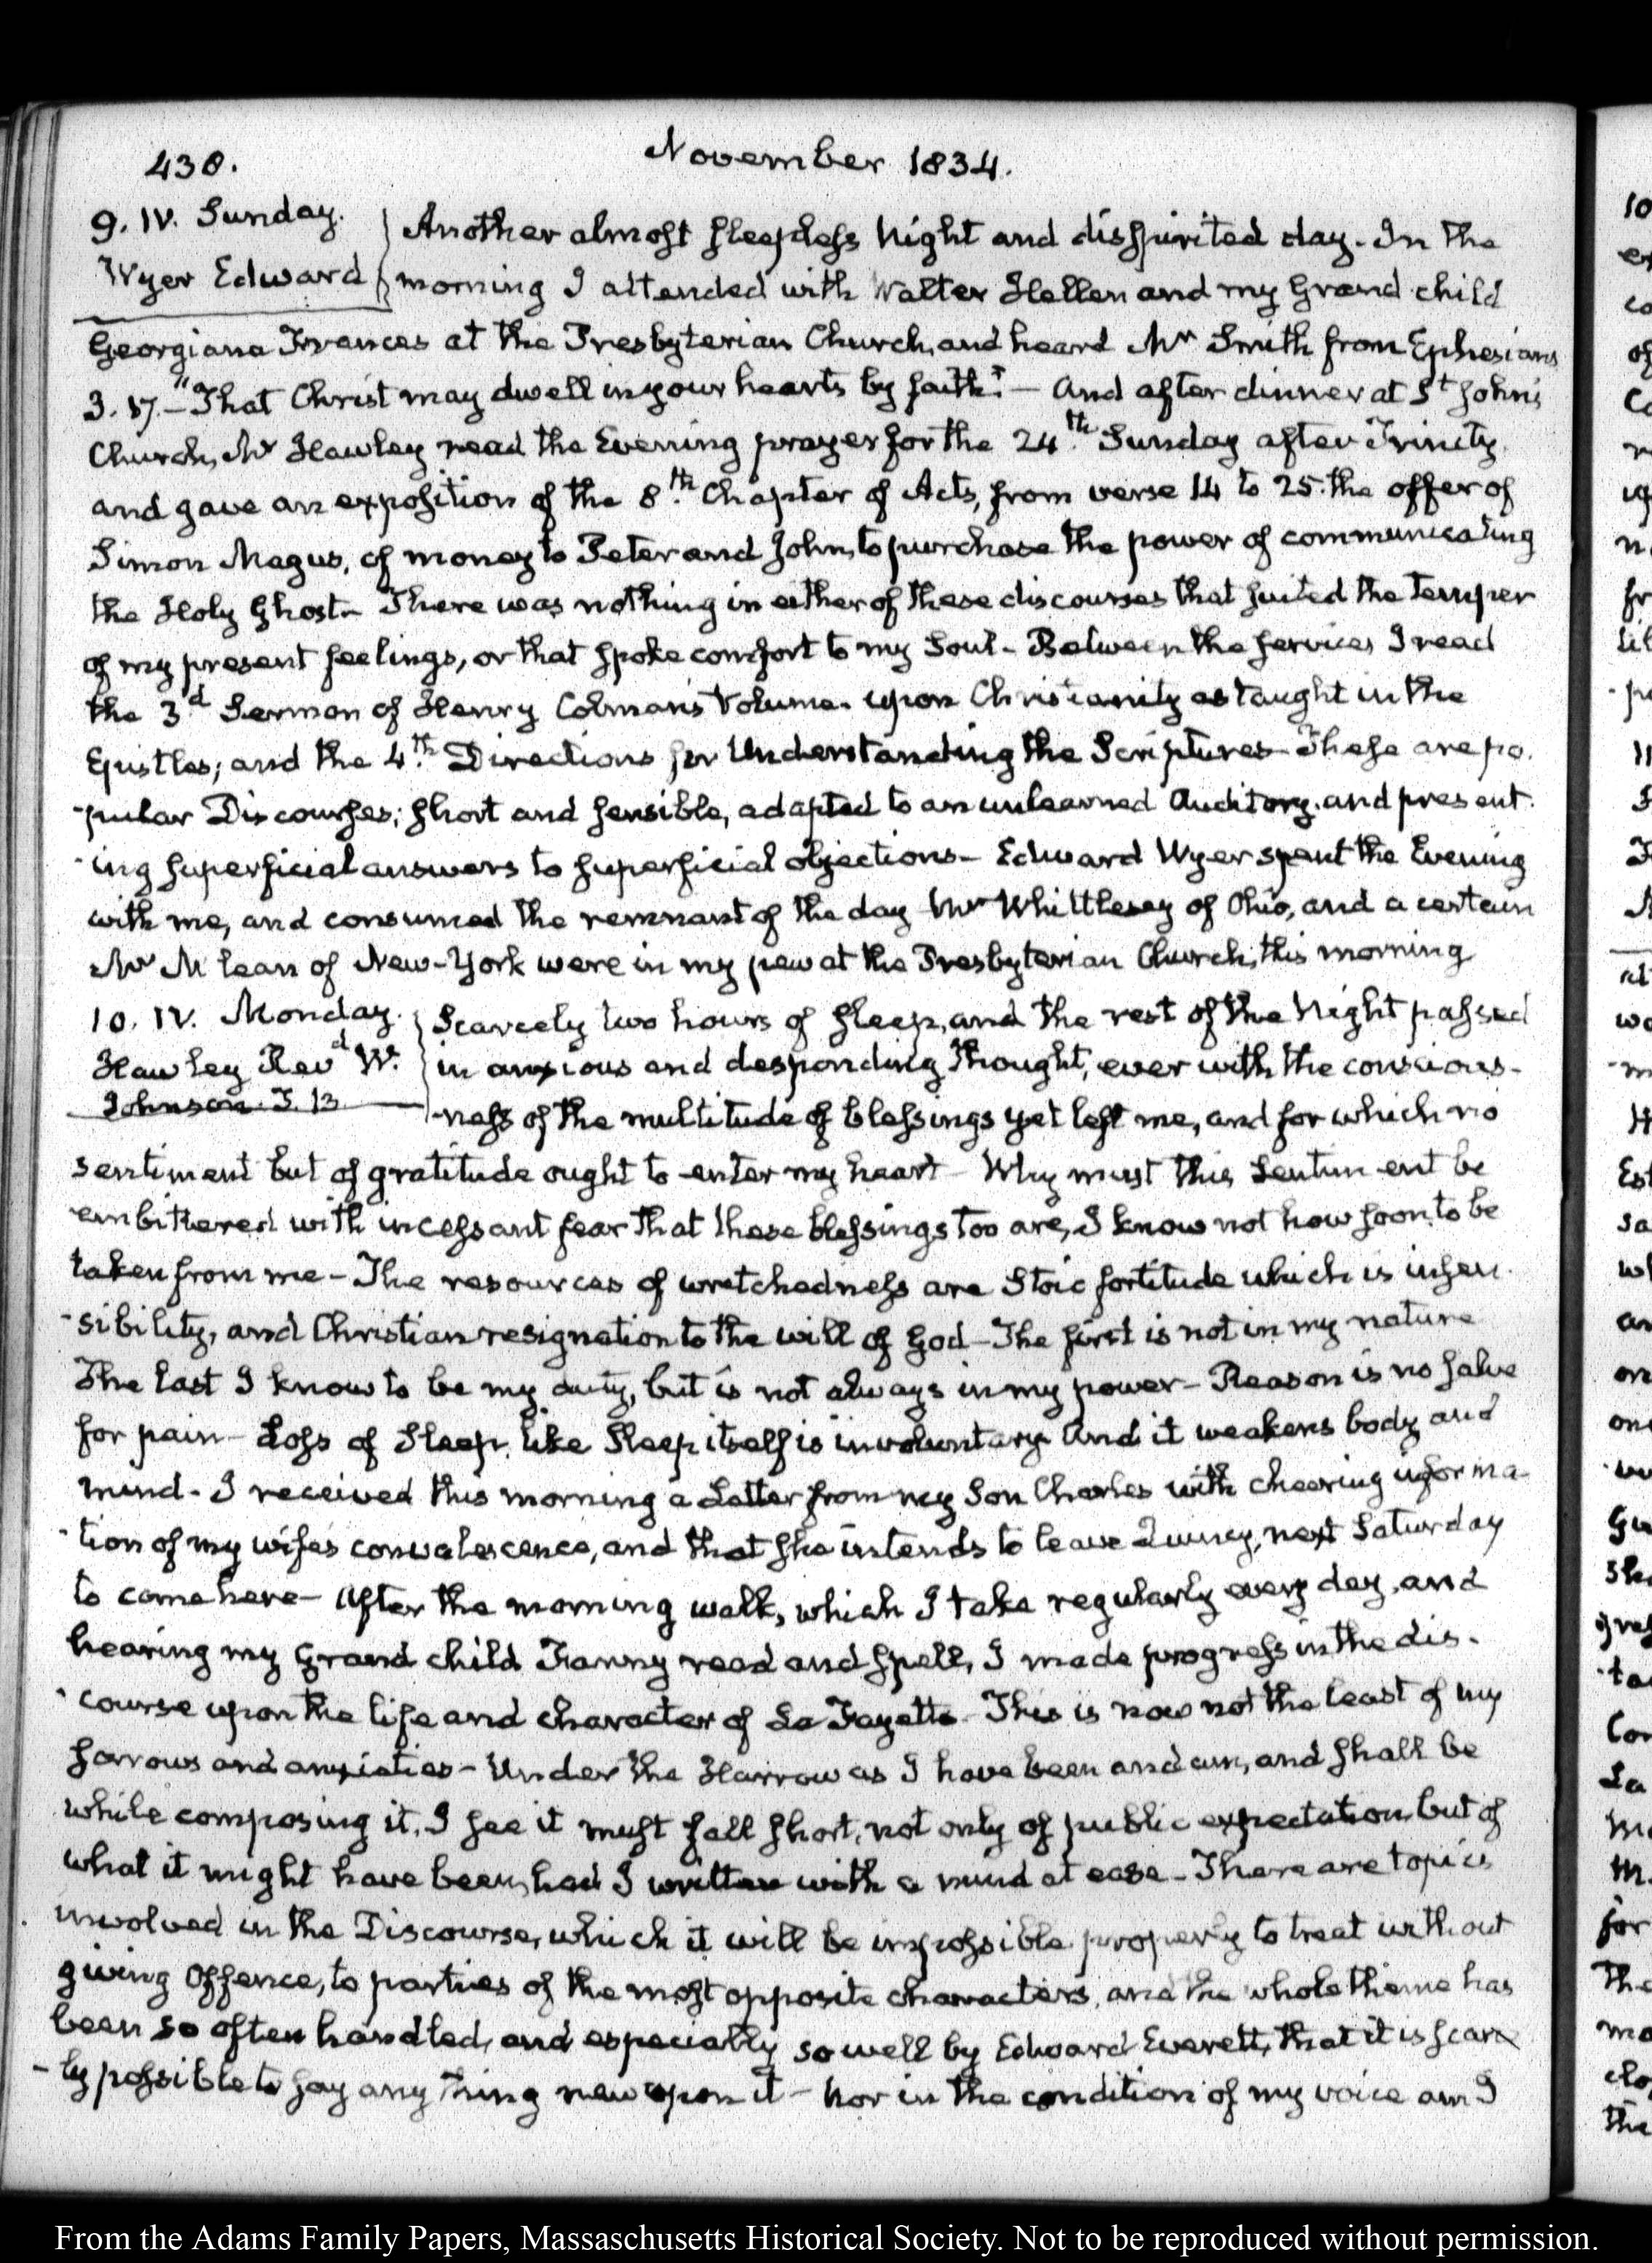 430.
November 1834.
9. IV. Sunday.
Wyer Edward
Another almost sleepless Night and dispirited day. In the
morning I attended with Walter Hellen and my Grand child
Georgiana Frances at the Presbyterian Church, and heard Mr Smith from Ephesians
3. 17.— "That Christ may dwell in your hearts by faith" — And after dinner at St John's
Church, Mr Hawley read the Evening prayer for the 24th Sunday after Trinity
and gave an exposition of the 8th Chapter of Acts, from verse 14 to 25. the offer of
Simon Magus, of money to Peter and John, to purchase the power of communicating
the Holy Ghost— There was nothing in either of these discourses that suited the temper
of my present feelings, or that spoke comfort to my Soul— Between the services I read
the 3d Sermon of Henry Colman's Volume. upon Christianity as taught in the
Epistles; and the 4th Directions for Understanding the Scriptures— These are po-
-pular Discourses; short and sensible, adapted to an unlearned Auditory, and present-
-ing superficial answers to superficial objections— Edward Wyer spent the Evening
with me, and consumed the remnant of the day Mr Whittlesey of Ohio, and a certain
Mr M lean of New-York were in my pew at the Presbyterian Church, this morning
10. IV. Monday.
Hawley Revd W.
Johnson. J. B
Scarcely two hours of sleep, and the rest of the Night passed
in anxious and desponding thought, ever with the conscious-
-ness of the multitude of blessings yet left me, and for which no
sentiment but of gratitude ought to enter my heart— Why must this sentiment be
embittered with incessant fear that these blessings too are, I know not how soon, to be
taken from me— The resources of wretchedness are Stoic fortitude which is insen-
-sibility, and Christian resignation to the will of God— The first is not in my nature
The last I know to be my duty, but is not always in my power— Reason is no salve
for pain— Loss of Sleep, like Sleep itself is involuntary And it weakens body and
mind— I received this morning a Letter from my Son Charles with cheering informa-
-tion of my wife's convalescence, and that she intends to leave Quincy, next Saturday
to come here— After the morning walk, which I take regularly every day, and
hearing my Grand child Fanny read and spell, I made progress in the dis-
-course upon the life and character of La Fayette— This is now not the least of my
sorrows and anxieties— Under the Harrow as I have been and am, and shall be
while composing it, I see it must fall short, not only of public expectation, but of
what it might have been, had I written with a mind at ease— There are topics
involved in the Discourse, which it will be impossible properly to treat without
giving Offence, to parties of the most opposite characters, and the whole theme has
been so often handled, and especially so well by Edward Everett, that it is scarce-
-ly possible to say any thing new upon it— Nor in the condition of my voice am I
From the Adams Family Papers, Massachusetts Historical Society. Not to be reproduced without permission.